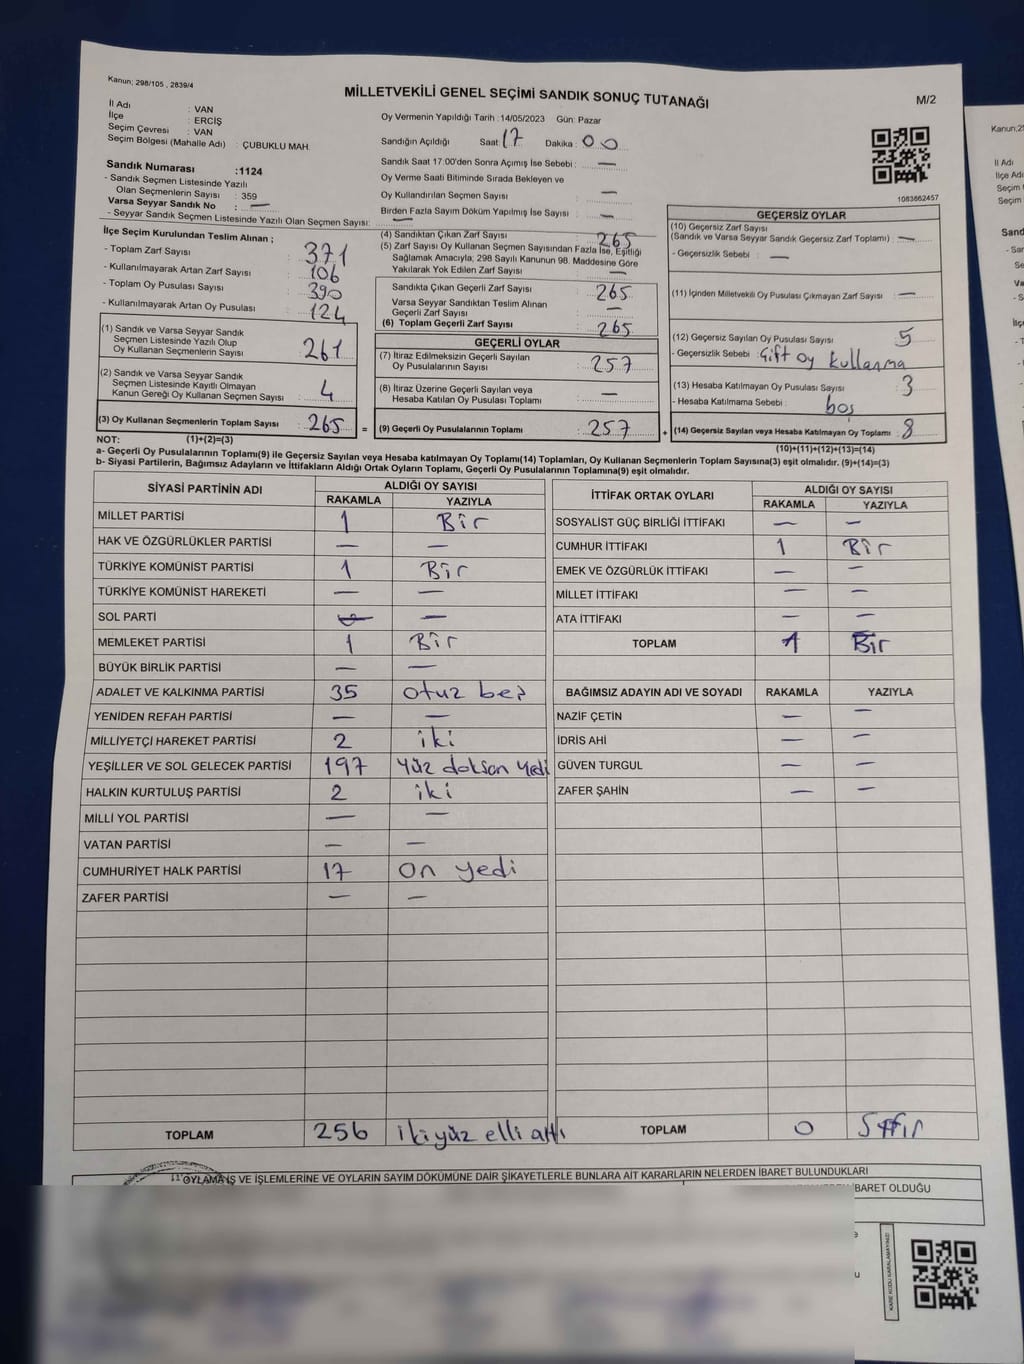 Kanun; 298/105 , 2839/4
MİLLETVEKİLİ GENEL SEÇİMİ SANDIK SONUÇ TUTANAĞI
M/2
İl Adı : VAN
İlçe : ERCİŞ
Seçim Çevresi : VAN
Seçim Bölgesi (Mahalle Adı) : ÇUBUKLU MAH.
Sandık Numarası :1124
- Sandık Seçmen Listesinde Yazılı
Olan Seçmenlerin Sayısı : 359
Varsa Seyyar Sandık No : —
- Seyyar Sandık Seçmen Listesinde Yazılı Olan Seçmen Sayısı: —
Oy Vermenin Yapıldığı Tarih :14/05/2023 Gün: Pazar
Sandığın Açıldığı Saat: 17 Dakika : 00
Sandık Saat 17:00'den Sonra Açımış İse Sebebi : —
Oy Verme Saati Bitiminde Sırada Bekleyen ve
Oy Kullandırılan Seçmen Sayısı —
Birden Fazla Sayım Döküm Yapılmış İse Sayısı : —
1083662457
İlçe Seçim Kurulundan Teslim Alınan ;
- Toplam Zarf Sayısı : 371
- Kullanılmayarak Artan Zarf Sayısı : 106
- Toplam Oy Pusulası Sayısı : 390
- Kullanılmayarak Artan Oy Pusulası : 124
(1) Sandık ve Varsa Seyyar Sandık
Seçmen Listesinde Yazılı Olup
Oy Kullanan Seçmenlerin Sayısı : 261
(2) Sandık ve Varsa Seyyar Sandık
Seçmen Listesinde Kayıtlı Olmayan
Kanun Gereği Oy Kullanan Seçmen Sayısı : 4
(3) Oy Kullanan Seçmenlerin Toplam Sayısı : 265 =
(4) Sandıktan Çıkan Zarf Sayısı : 265
(5) Zarf Sayısı Oy Kullanan Seçmen Sayısından Fazla İse, Eşitliği
Sağlamak Amacıyla; 298 Sayılı Kanunun 98. Maddesine Göre
Yakılarak Yok Edilen Zarf Sayısı : —
Sandıkta Çıkan Geçerli Zarf Sayısı : 265
Varsa Seyyar Sandıktan Teslim Alınan
Geçerli Zarf Sayısı : —
(6) Toplam Geçerli Zarf Sayısı : 265
GEÇERLİ OYLAR
(7) İtiraz Edilmeksizin Geçerli Sayılan
Oy Pusulalarının Sayısı : 257
(8) İtiraz Üzerine Geçerli Sayılan veya
Hesaba Katılan Oy Pusulası Toplamı : —
(9) Geçerli Oy Pusulalarının Toplamı : 257 +
GEÇERSİZ OYLAR
(10) Geçersiz Zarf Sayısı
(Sandık ve Varsa Seyyar Sandık Geçersiz Zarf Toplamı) : —
- Geçersizlik Sebebi : —
(11) İçinden Milletvekili Oy Pusulası Çıkmayan Zarf Sayısı : —
(12) Geçersiz Sayılan Oy Pusulası Sayısı : 5
- Geçersizlik Sebebi : Çift oy kullanma
(13) Hesaba Katılmayan Oy Pusulası Sayısı : 3
- Hesaba Katılmama Sebebi : boş
(14) Geçersiz Sayılan veya Hesaba Katılmayan Oy Toplamı : 8
NOT: (1)+(2)=(3)
(10)+(11)+(12)+(13)=(14)
a- Geçerli Oy Pusulalarının Toplamı(9) ile Geçersiz Sayılan veya Hesaba katılmayan Oy Toplamı(14) Toplamları, Oy Kullanan Seçmenlerin Toplam Sayısına(3) eşit olmalıdır. (9)+(14)=(3)
b- Siyasi Partilerin, Bağımsız Adayların ve İttifakların Aldığı Ortak Oyların Toplamı, Geçerli Oy Pusulalarının Toplamına(9) eşit olmalıdır.
SİYASİ PARTİNİN ADI ALDIĞI OY SAYISI
RAKAMLA YAZIYLA
MİLLET PARTİSİ 1 Bir
HAK VE ÖZGÜRLÜKLER PARTİSİ — —
TÜRKİYE KOMÜNİST PARTİSİ 1 Bir
TÜRKİYE KOMÜNİST HAREKETİ — —
SOL PARTİ — —
MEMLEKET PARTİSİ 1 Bir
BÜYÜK BİRLİK PARTİSİ — —
ADALET VE KALKINMA PARTİSİ 35 otuz beş
YENİDEN REFAH PARTİSİ — —
MİLLİYETÇİ HAREKET PARTİSİ 2 iki
YEŞİLLER VE SOL GELECEK PARTİSİ 197 Yüz doksan yedi
HALKIN KURTULUŞ PARTİSİ 2 iki
MİLLİ YOL PARTİSİ — —
VATAN PARTİSİ — —
CUMHURİYET HALK PARTİSİ 17 On yedi
ZAFER PARTİSİ — —
TOPLAM 256 ikiyüz elli altı
İTTİFAK ORTAK OYLARI ALDIĞI OY SAYISI
RAKAMLA YAZIYLA
SOSYALİST GÜÇ BİRLİĞİ İTTİFAKI — —
CUMHUR İTTİFAKI 1 Bir
EMEK VE ÖZGÜRLÜK İTTİFAKI — —
MİLLET İTTİFAKI — —
ATA İTTİFAKI — —
TOPLAM 1 Bir
BAĞIMSIZ ADAYIN ADI VE SOYADI RAKAMLA YAZIYLA
NAZİF ÇETİN — —
İDRİS AHİ — —
GÜVEN TURGUL — —
ZAFER ŞAHİN — —
TOPLAM 0 Sıfır
OYLAMA İŞ VE İŞLEMLERİNE VE OYLARIN SAYIM DÖKÜMÜNE DAİR ŞİKAYETLERLE BUNLARA AİT KARARLARIN NELERDEN İBARET BULUNDUKLARI
İBARET OLDUĞU
KARE KODU KARALAMAYINIZ!
Kanun;
İl Adı
İlçe Adı
Seçim
Seçim